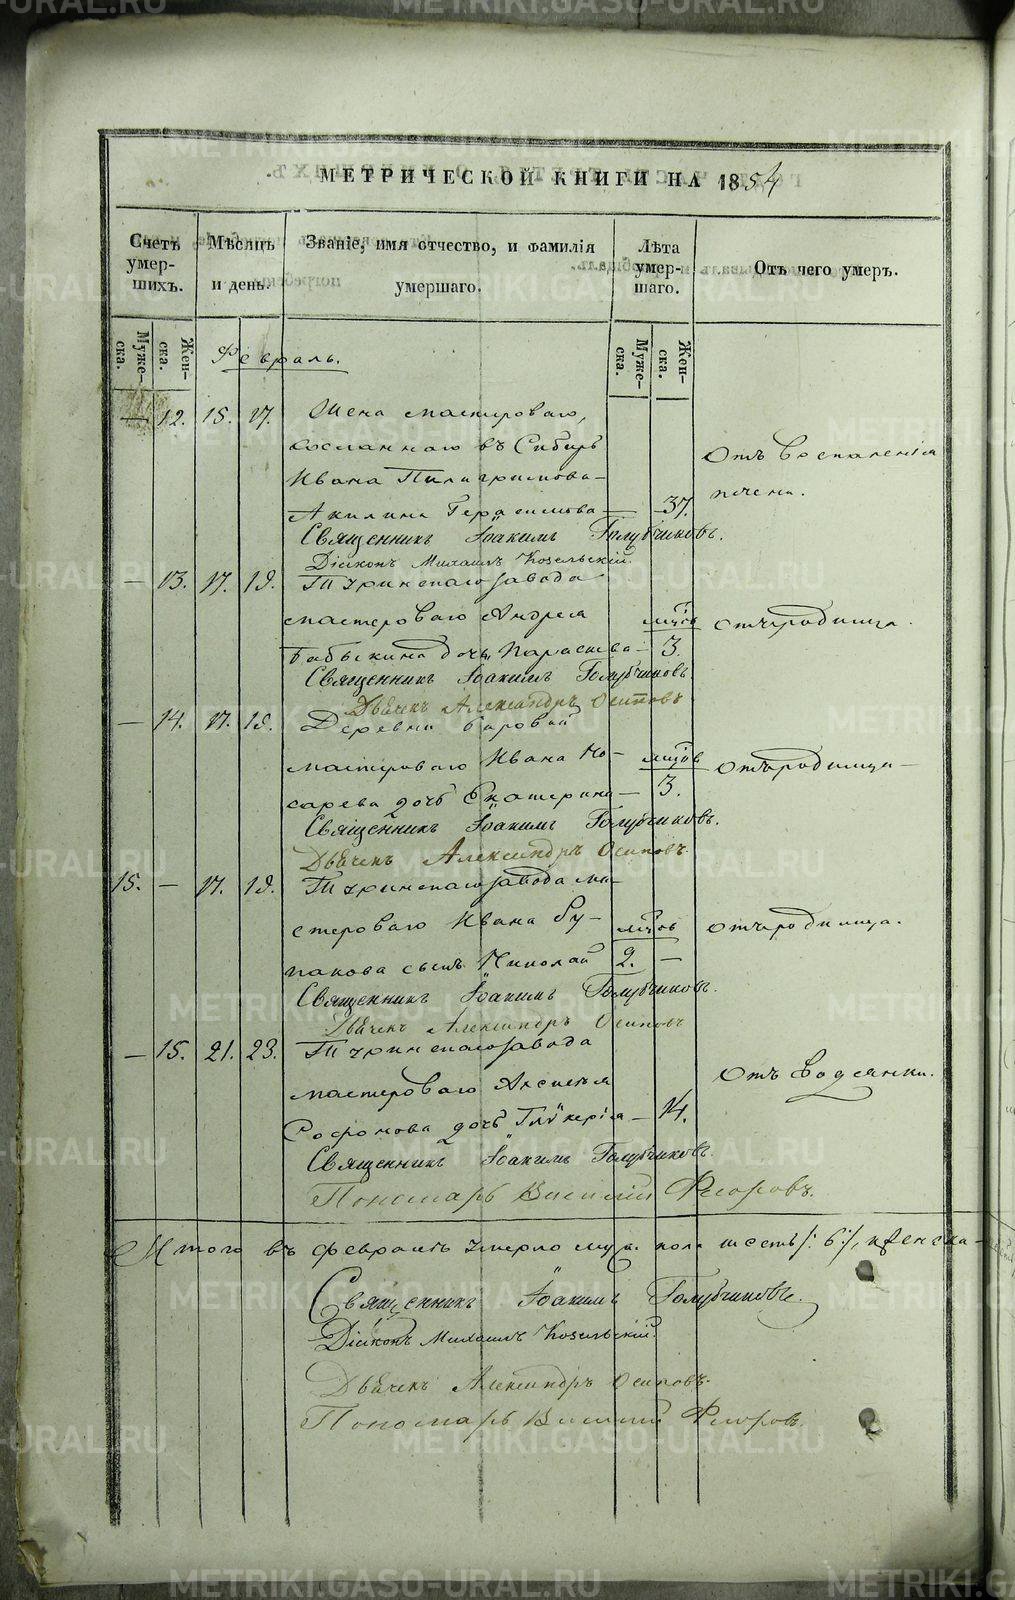 МЕТРИЧЕСКОЙ КНИГИ НА 1854
Счетъ умер- шихъ.
Мѣсяцъ и день.
Званіе, имя отчество, и фамилія умершаго.
Лѣта умер- шаго.
Отъ чего умеръ.
Муже- ска.
Жен- ска.
Муже- ска.
Жен- ска.
Февраль.
— 12. 15. 17. Жена мастероваго,
сосланнаго въ Сибирь
Ивана Пилигримова
Акилина Герасимова — 37.
Отъ воспаленія
печени.
Священникъ Іоакимъ Голубчиковъ.
Діаконъ Михаилъ Козельскій
— 13. 17. 19. Туринскаго завода
мастероваго Андрея
Бабыкина дочь Параскева — мцов 3.
отъ родимца.
Священникъ Іоакимъ Голубчиковъ
Дьячекъ Александръ Осиповъ
— 14. 17. 19. Деревни
мастероваго Ивана Но-
сарева дочь Екатерина — мцов 3.
отъ родимца —
Священникъ Іоакимъ Голубчиковъ.
Дьячекъ Александръ Осиповъ
15. — 17. 19. Туринскаго завода ма-
стероваго Ивана
сынъ Николай мцов 2. —
отъ родимца.
Священникъ Іоакимъ Голубчиковъ.
Дьячекъ Александръ Осиповъ
— 15. 21. 23. Туринскаго завода
мастероваго Аксентія
Софонова дочь Гликерія — 14.
Отъ водянки.
Священникъ Іоакимъ Голубчиковъ
Пономарь Василій Флоровъ.
Итого въ февралѣ умерло муж. пола шесть /: 6 :/, женска-
Священникъ Іоакимъ Голубчиковъ.
Діаконъ Михаилъ Козельскій.
Дьячекъ Александръ Осиповъ.
Пономарь Василій Флоровъ.
METRIKI.GASO-URAL.RU